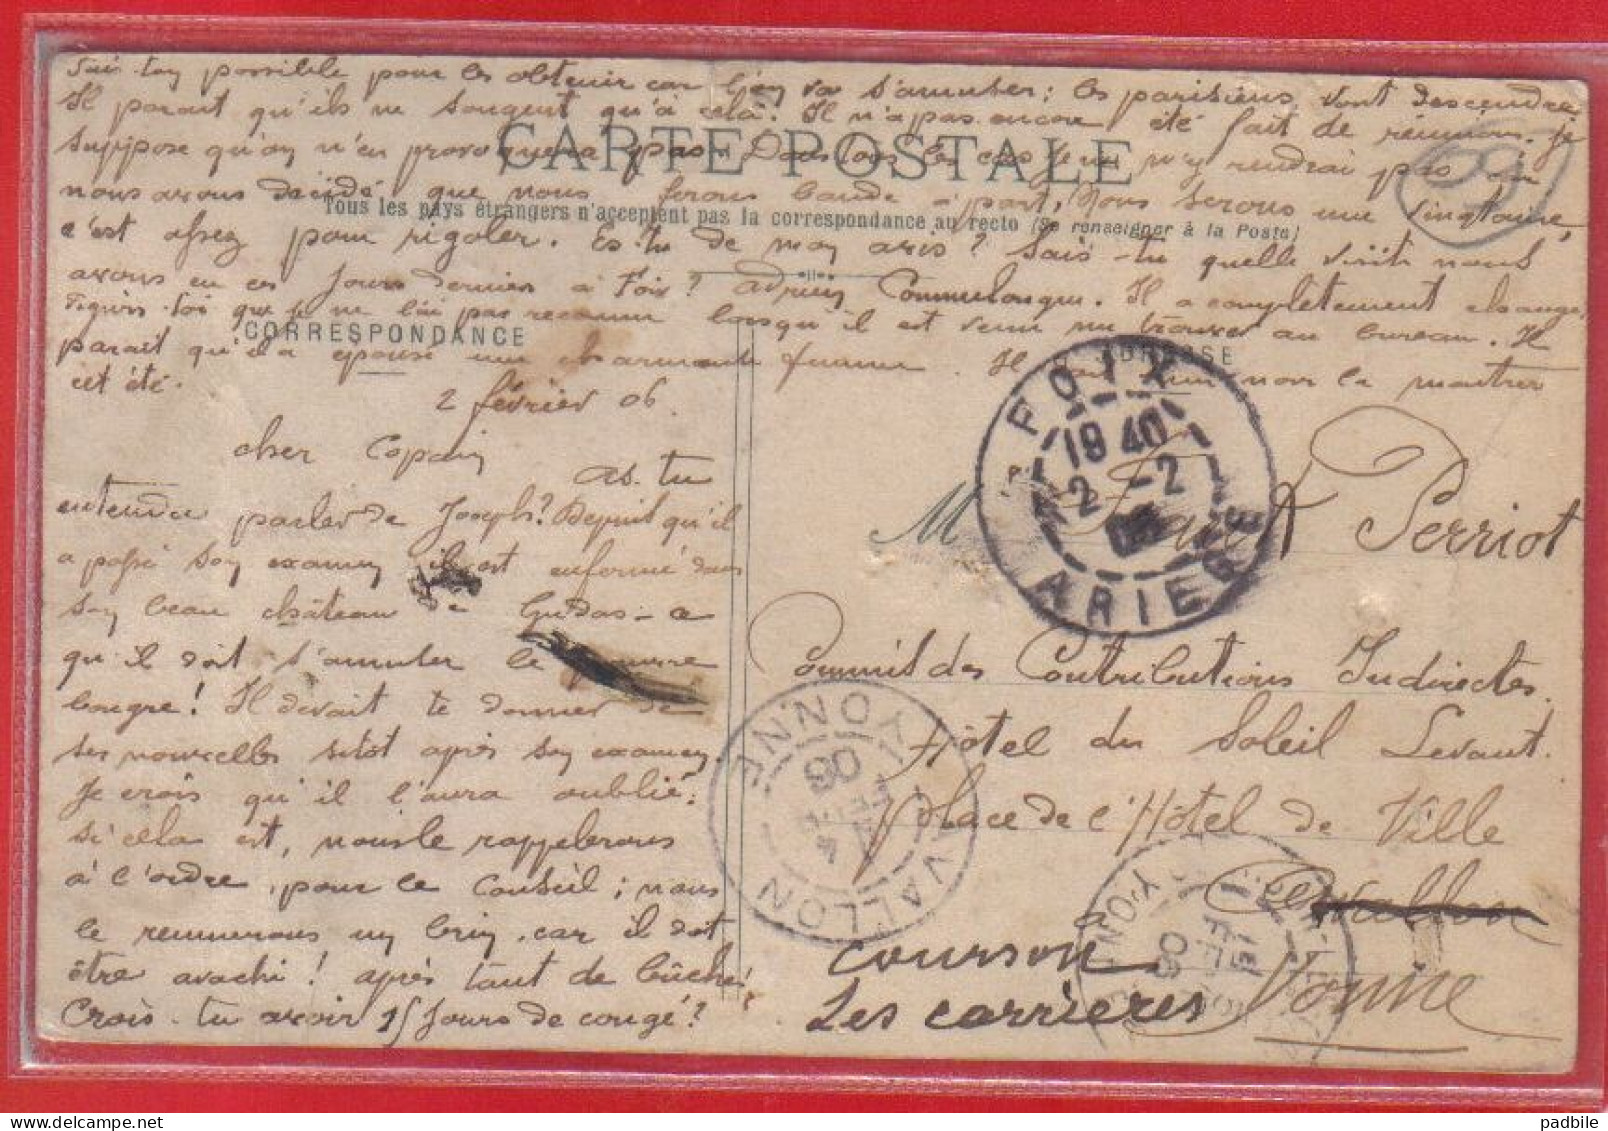 fais ton possible pour les obtenir car l'on va s'amuser : les parisiens vont descendre.
Il parait qu'ils ne songent qu'à cela. Il n'a pas encore été fait de réunions. Je
CARTE POSTALE
suppose qu'on n'en provoquera pas. Dans tous les cas je m'y rendrai pas
nous avons décidé que nous ferons bande à part, Nous serons une vingtaine,
Tous les pays étrangers n'acceptent pas la correspondance au recto (Se renseigner à la Poste)
c'est assez pour rigoler. Es-tu de mon avis ? Sais-tu quelle visite nous
avons eu ces jours derniers à Foix ? Adrien Commelongue. Il a complètement changé,
figure-toi que je ne l'ai pas reconnu lorsqu'il est venu me trouver au bureau. Il
CORRESPONDANCE
ADRESSE
parait qu'il a épousé une charmante femme. Il nous la montrer
cet été.
2 février 06.
cher Copain
as-tu
entendu parler de Joseph ? Depuis qu'il
a passé son examen il est enfermé dans
son beau château de Gudas - ce
qu'il doit s'amuser le pauvre
bougre ! Il devait te donner de
ses nouvelles sitôt après son examen.
Je crois qu'il l'aura oublié ;
si cela est, nous le rappelerons
à l'ordre, pour le Conseil ; nous
le remuerons un brin, car il doit
être avachi ! après tant de bûche !
Crois-tu avoir 15 jours de congé ?
FOIX
19 40
2 -2
06
ARIEGE
M Perriot
Commis des Contributions Indirectes.
Hôtel du Soleil Levant.
Place de l'Hôtel de Ville
Avallon
à
courson
Les carrières
Yonne
AVALLON
YONNE
06
YONNE
06
padbile